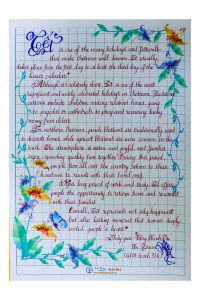 Tết
is one of the many holidays and festivals
that made Vietnam well known. It usually
takes place from the first day to at least the third day of the
lunar calendar.
Although it's relatively short, Tet is one of the most
significant and widely celebrated holidays in Vietnam. Traditional
customs include children visiting relatives' houses, going
to pagodas or cathedrals to pray and receiving lucky
money from elders.
In northern Vietnam, peach blossoms are traditionally used
to decorate homes, while apricot blossoms are more common in the
south. The atmosphere is warm and joyful, and families
enjoy spending quality time together. During this period,
people from all over the country return to their
hometowns to reunite with their loved ones.
After a long period of work and study, Tet offers
people the opportunity to return home and reconnect
with their families.
Overall, Tet represents not only happiness
but also lasting memories that remain deeply
in people's hearts.